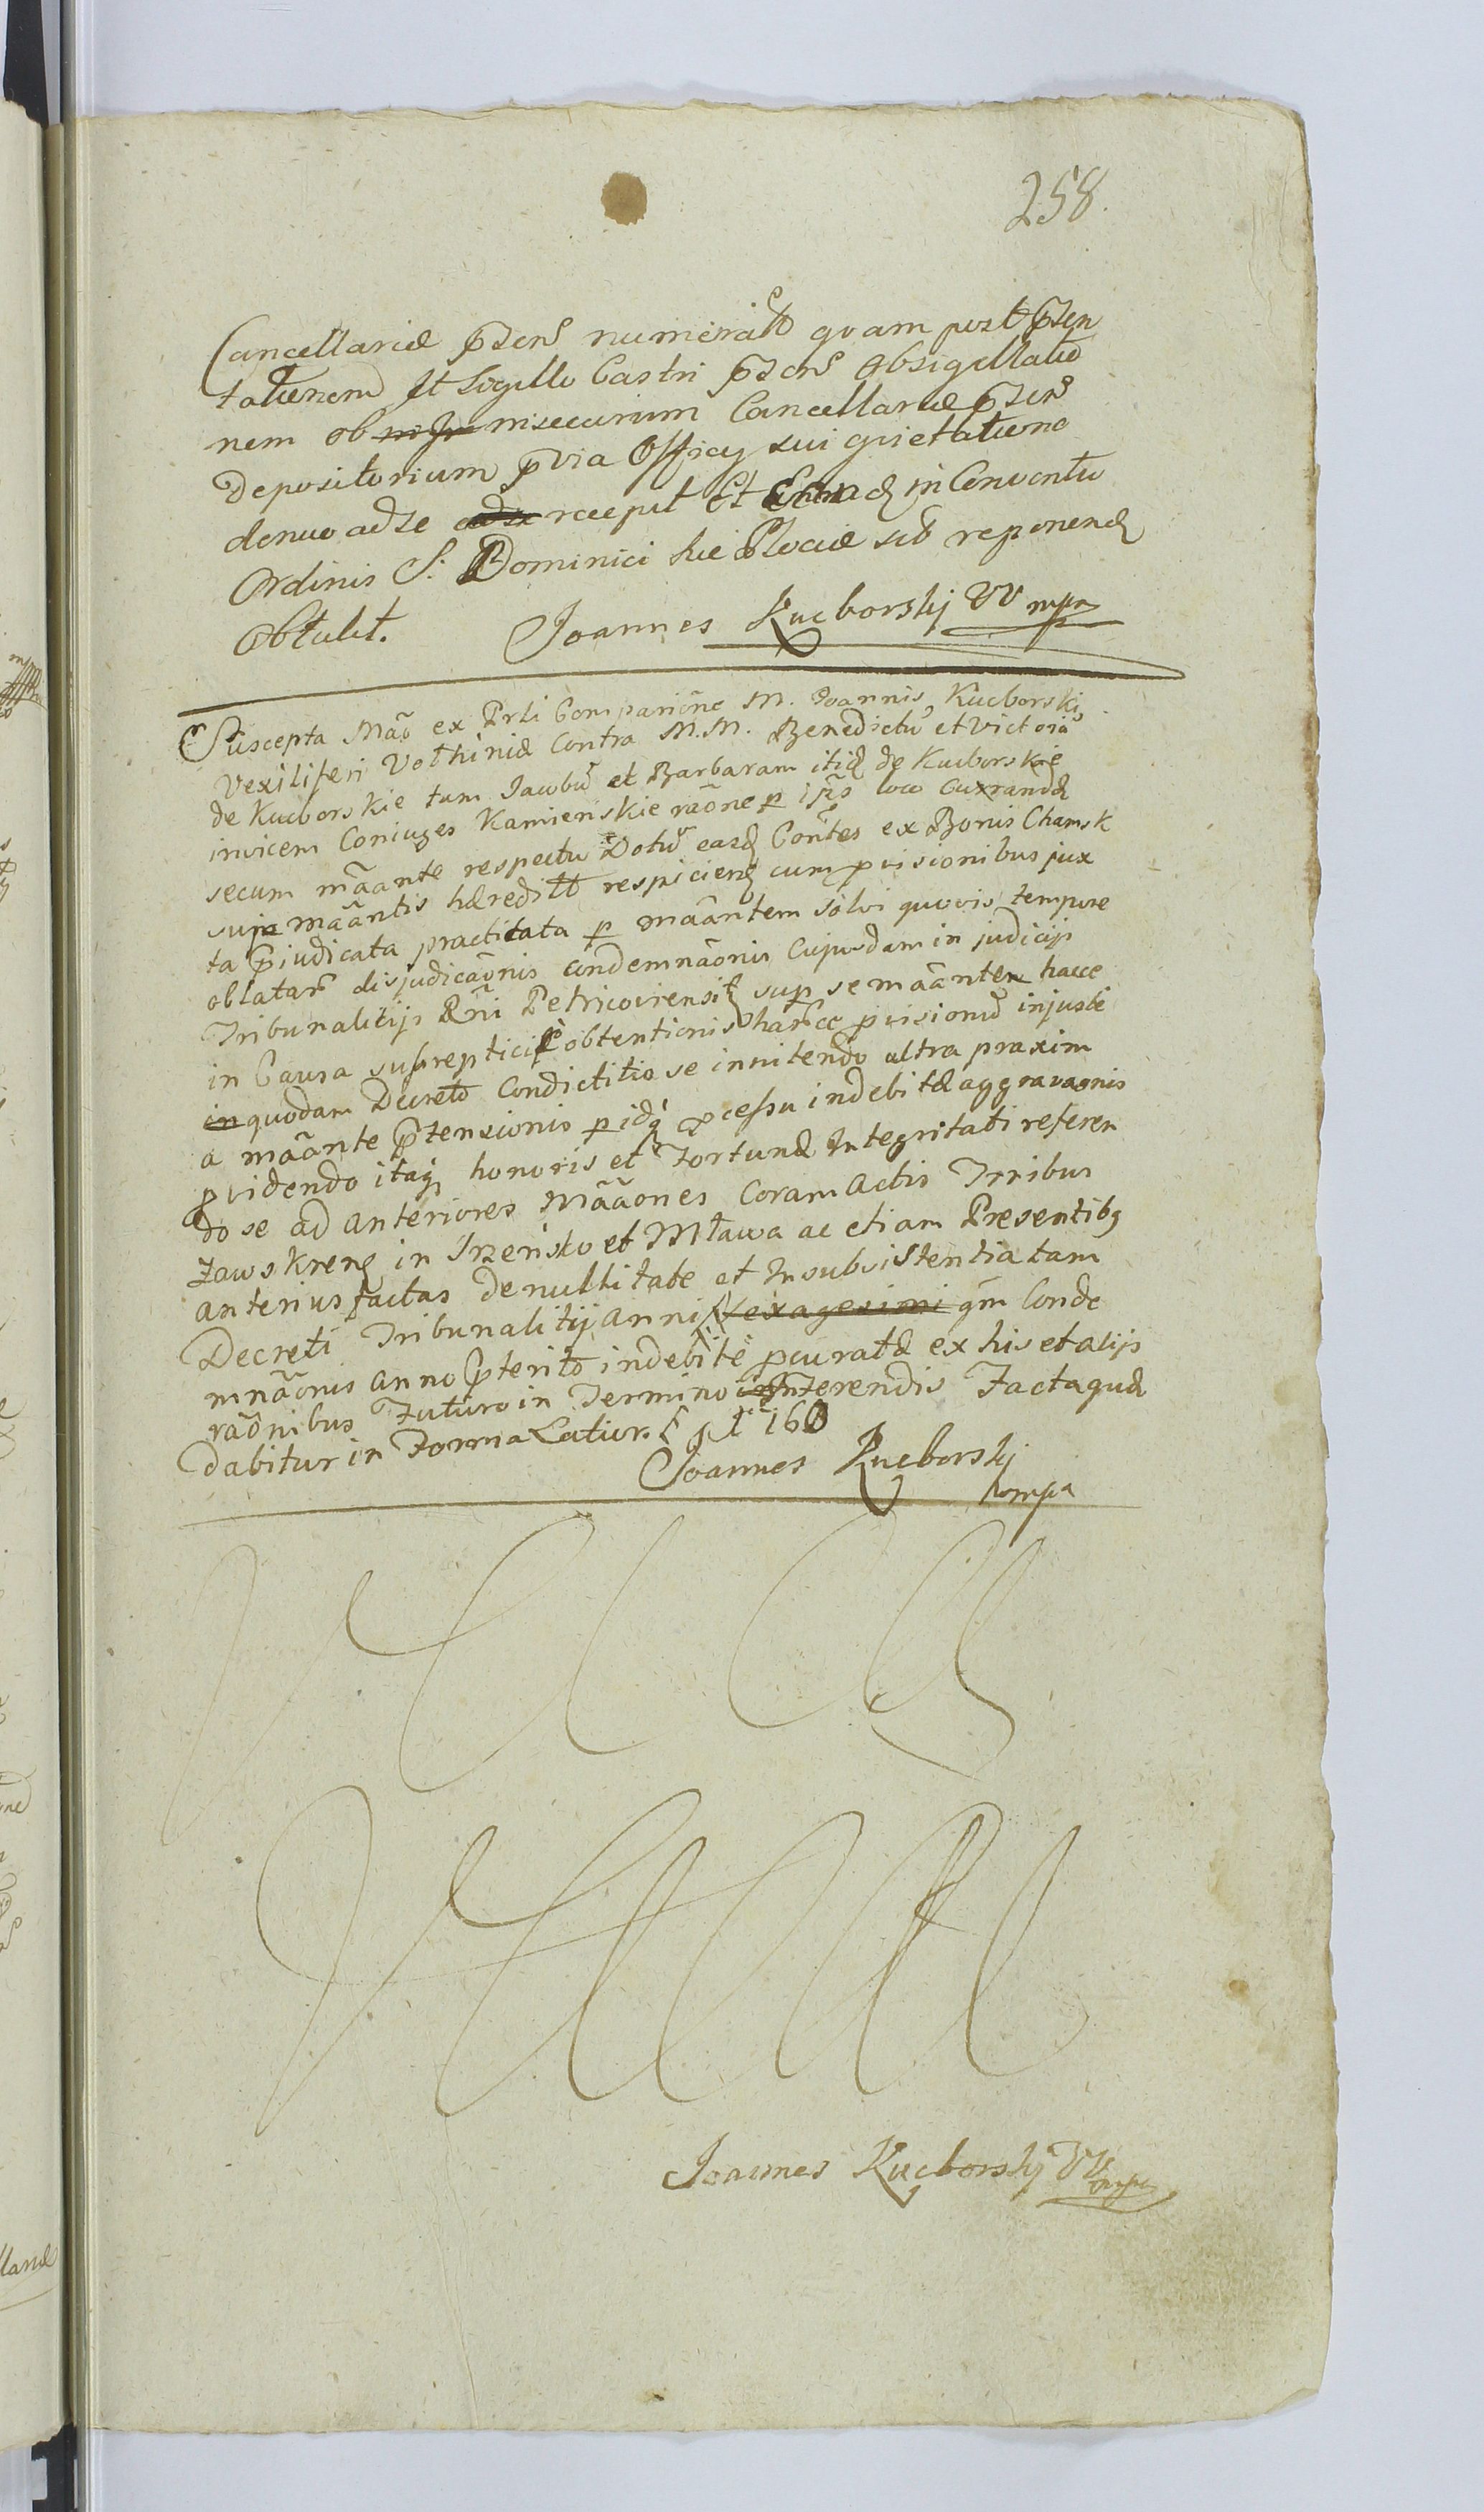 258.
Cancellariæ p̃sens numeratt quam post p̃sen
tationem Et Sigillo Castri p̃sens obsigillatio
nem ob insecurium Cancellariæ p̃sens
Depositorium p̃via Officy sui quietatione
denuo ad se recepit Et in Conventu
Ordinis S: Dominici hic Plociæ reponend
Obtulit. Joannes Kucborskj VV mpa
Suscepta Mão ex Prli Compariõne M. Joannis Kucborski
Vexiliferi Volhiniæ Contra M.M. Benedictũ et Victoriã
de Kucborskie tum Jacobũ et Barbaram itid de Kucborskie
invicem Coniuges Kamienskie raõne p ip̃s loco Curandæ
secum mãante respectu Dotũ eard Contes ex Bonis Chamsk
sup mãantis hæreditt respiciend cum p̱visionibus jux
ta p̃iudicata practicata p mãantem solvi quovis tempore
oblatarũ disjudicaõnis condemnaõnis Cujusdam in judicijs
Tribunalitijs Rñi Petricovirensi sup se mãantem hacce
in Causa subrepticiè obtentionis harcce p̱visionũ injuste
quodam Decreto Condictitio se innitendo ultra praxim
a mãante p̃tensionis p idq p̱cessu indebitæ aggravaõnis
p̱videndo itaq honoris et Fortunæ Integritati referen
do se ad anteriores Mãaones Coram Actis Trribus
Zawskrens in Srzensko et Mława ac etiam Presentibq
anterius factas de nullitate et Insubsistentia tam
Decreti Tribunalitij anni qm Conde
mnaõnis anno p̃terito indebite p̱curatæ ex his et alijs
raõnibus Futuro in Termino Inferendis Factaquæ
dabitur in Forma Latior.
Joannes Kucborskj
mpa
Joannes Kucborskj VV mpa